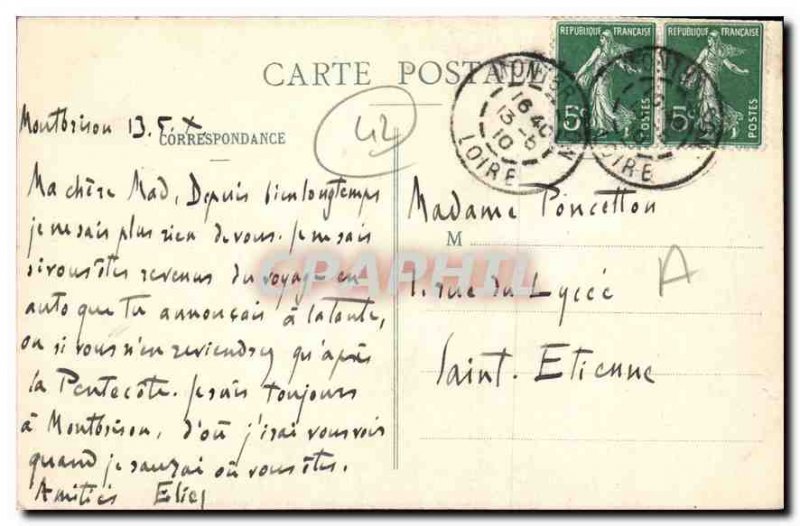 CARTE POSTALE
Montbrison 13.5.X
CORRESPONDANCE
42
Ma chère Mad, Depuis bien longtemps
je ne sais plus rien de vous. Je ne sais
si vous êtes revenus du voyage en
auto que tu annonçais à la tante,
ou si vous n'en reviendrez qu'après
la Pentecôte. Je suis toujours
à Montbrison, d'où j'irai vous voir
quand je saurai où vous êtes.
Amitiés
REPUBLIQUE FRANÇAISE
5c
POSTES
REPUBLIQUE FRANÇAISE
5c
POSTES
16 40
13 - 5
10
LOIRE
Madame Poncetton
M
1. rue du Lycée
Saint. Etienne
A
CPAPHIL